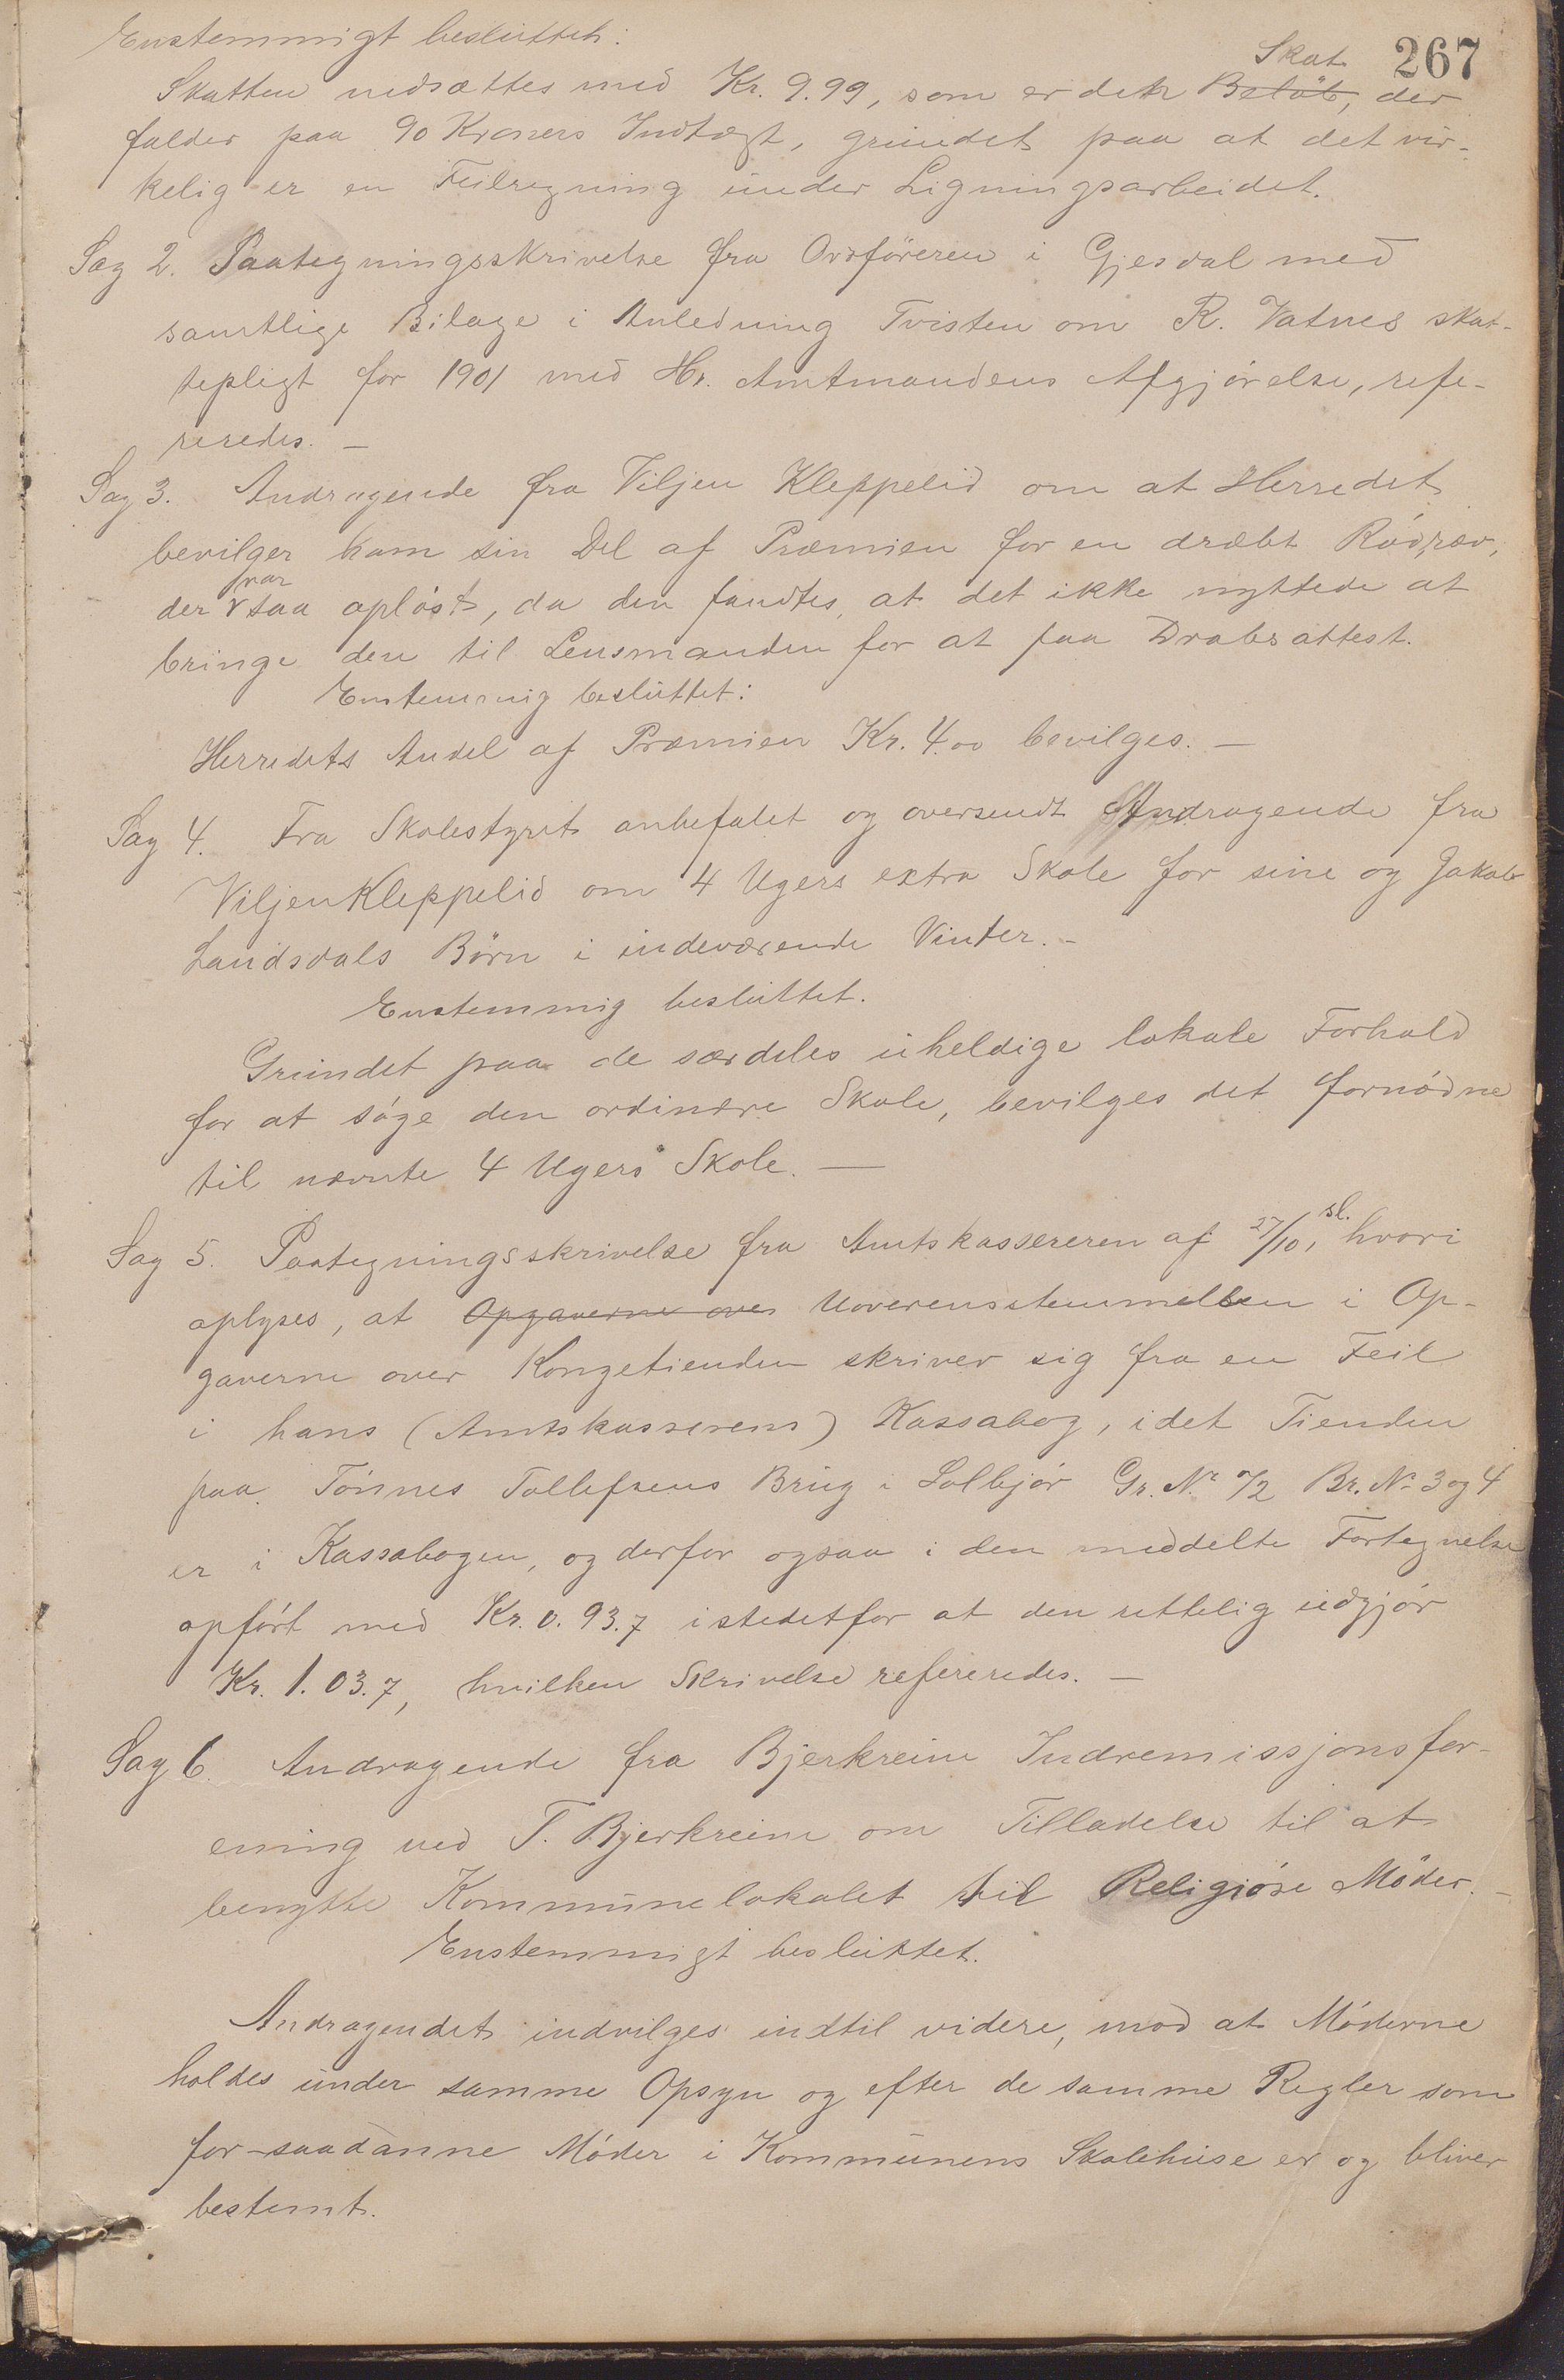 267
Enstemmigt besluttet:
Skatten nedsættes med Kr. 9.99, som er den Beløb, Skat der
falder paa 90 Kroners Indtægt, grundet paa at det vir-
kelig er en Feilregning under Ligningsarbeidet.
Sag 2. Paategningsskrivelse fra Ordføreren i Gjesdal med
samtlige Bilage i Anledning Tvisten om R. Vatnes skat-
tepligt for 1901 med Hr. Amtmandens Afgjørelse, refe-
reredes. —
Sag 3. Andragende fra Viljen Kleppelid om at Herredet
bevilger ham sin Del af Præmien for en dræbt Rødræv,
der var saa opløst, da den fandtes, at det ikke nyttede at
bringe den til Lensmanden for at faa Drabsattest.
Enstemmig besluttet:
Herredets Andel af Præmien Kr. 4.00 bevilges. —
Sag 4. Fra Skolestyret anbefalet og oversendt Andragende fra
Viljen Kleppelid om 4 Ugers extra Skole for sine og Jakob
Laudsdals Børn i indeværende Vinter. —
Enstemmig besluttet.
Grundet paa de særdeles uheldige lokale Forhold
for at søge den ordinære Skole, bevilges det fornødne
til nævnte 4 Ugers Skole. —
Sag 5. Paategningsskrivelse fra Amtskassereren af 27/10 sl., hvori
oplyses, at Opgaverne over Uoverensstemmelsen i Op-
gaverne over Kongetienden skriver sig fra en Feil
i hans (Amtskasserens) Kassabog, idet Tienden
paa Tønnes Tollefsens Brug i Solbjør Gr. Nr. 72 Br. Nr 3 og 4
er i Kassabogen, og derfor ogsaa i den meddelte Fortegnelse
opført med Kr. 0.93.7 istedetfor at den rettelig udgjør
Kr. 1.03.7, hvilken Skrivelse refereredes. —
Sag 6. Andragende fra Bjerkreim Indremissjonsfor-
ening ved T. Bjerkreim om Tilladelse til at
benytte Kommunelokalet til Religiøse Møder. —
Enstemmigt besluttet.
Andragendet indvilges indtil videre, mod at Møderne
holdes under samme Opsyn og efter de samme Regler som
for saadanne Møder i Kommunens Skolehuse er og bliver
bestemt.